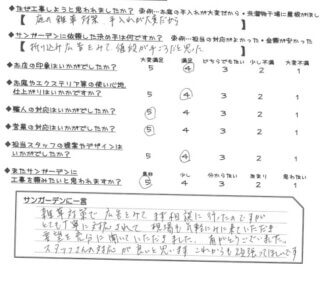 ◆なぜ工事しようと思われましたか？ 事例…お庭の手入れが大変だから・洗濯物干場に屋根がほし
【 庭の雑草対策 手入れが大変だから
◆サンガーデンに依頼した決め手は何ですか？ 事例…担当の対応がよかった・金額が安かった
【 折り込み広告を見て値段が手ごろだと思った
大変満足 満足 どちらでもない 少し不満 大変不満
◆お店の印象はいかがでしたか？ 5 4 3 2 1
◆お庭やエクステリア等の使い心地、
仕上がりはいかがですか？ 5 4 3 2 1
◆職人の対応はいかがでしたか？ 5 4 3 2 1
◆営業の対応はいかがでしたか？ 5 4 3 2 1
◆担当スタッフの提案やデザインは
いかがでしたか？ 5 4 3 2 1
◆またサンガーデンに
工事を頼みたいと思われますか？ 5 4 3 2 1
サンガーデンに一言
雑草対策で広告を見てまず相談に行ったのですが
とても丁寧に対応されて 現場も気軽にみに来ていただき
要望を充分に聞いていただきました。ありがとうございました。
スタッフさんの対応が良いと思います これからも頑張ってほしいです